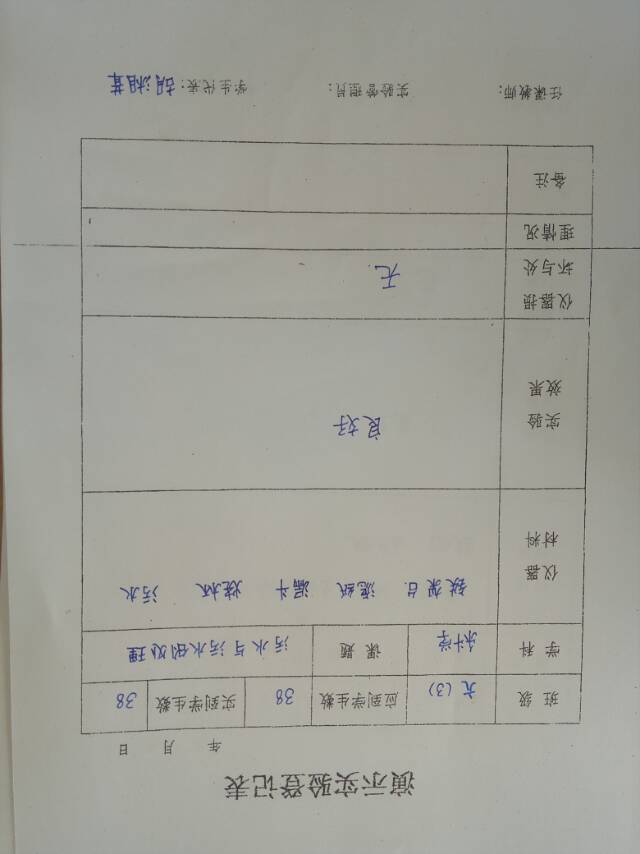 演示实验登记表
年 月 日
班 级 六(3) 应到学生数 38 实到学生数 38
学 科 科学 课 题 污水与污水的处理
仪器 材料 铁架台 滤纸 漏斗 烧杯 污水
实验 效果 良好
仪器损 坏与处 理情况 无
备注
任课教师: 实验管理员: 学生代表:胡湘